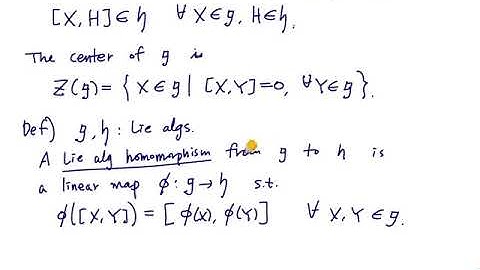 [X, H] ∈ 𝔥 ∀ X ∈ 𝔤, H ∈ 𝔥.
The center of 𝔤 is
Z(𝔤) = { X ∈ 𝔤 | [X, Y] = 0, ∀Y ∈ 𝔤 }.
Def) 𝔤, 𝔥 : Lie algs.
A Lie alg homomorphism from 𝔤 to 𝔥 is
a linear map ϕ : 𝔤 → 𝔥 s.t.
ϕ([X, Y]) = [ϕ(X), ϕ(Y)] ∀ X, Y ∈ 𝔤.